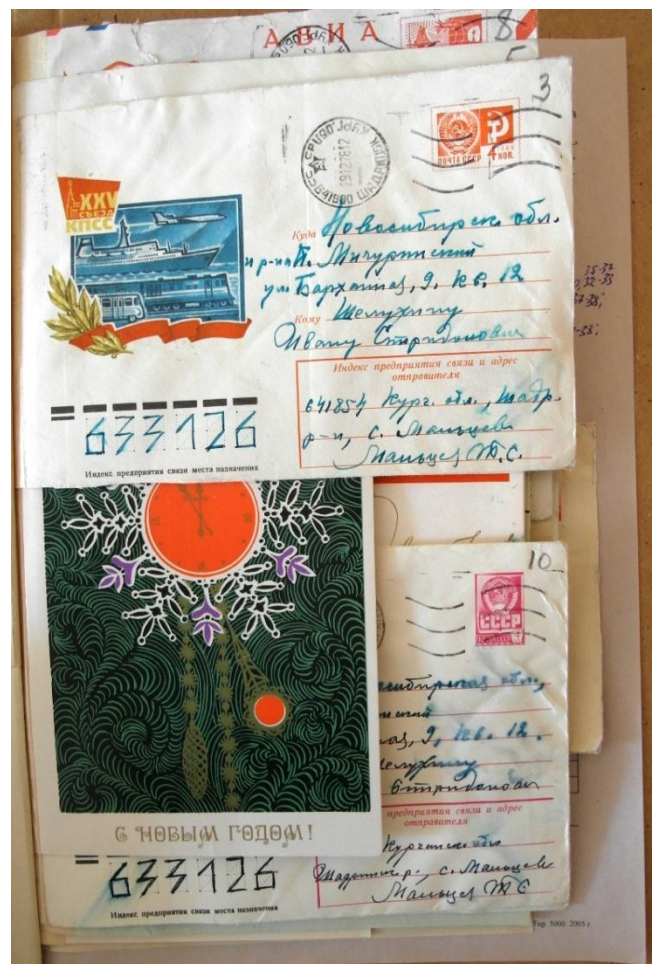 АВИА
8
5
3
ПОЧТА СССР
4 КОП.
641900
291276 12
XXV
СЪЕЗД
КПСС
Куда Новосибирск обл.
п. Мичуринский
ул Бархатная, 9. кв. 12
Кому Шелухину
Ивану Спиридоновичу
Индекс предприятия связи и адрес
отправителя
641854 Кург. обл., Шадр.
р-н, с. Мальцево
Мальцев Т.С.
633126
Индекс предприятия связи места назначения
10
СССР
обл.,
9, кв. 12.
предприятия связи и адрес
отправителя
Курганская обл
с. Мальцево
Мальцев Т С
С НОВЫМ ГОДОМ!
633126
Индекс предприятия связи места назначения
Тир. 5000. 2005 г.